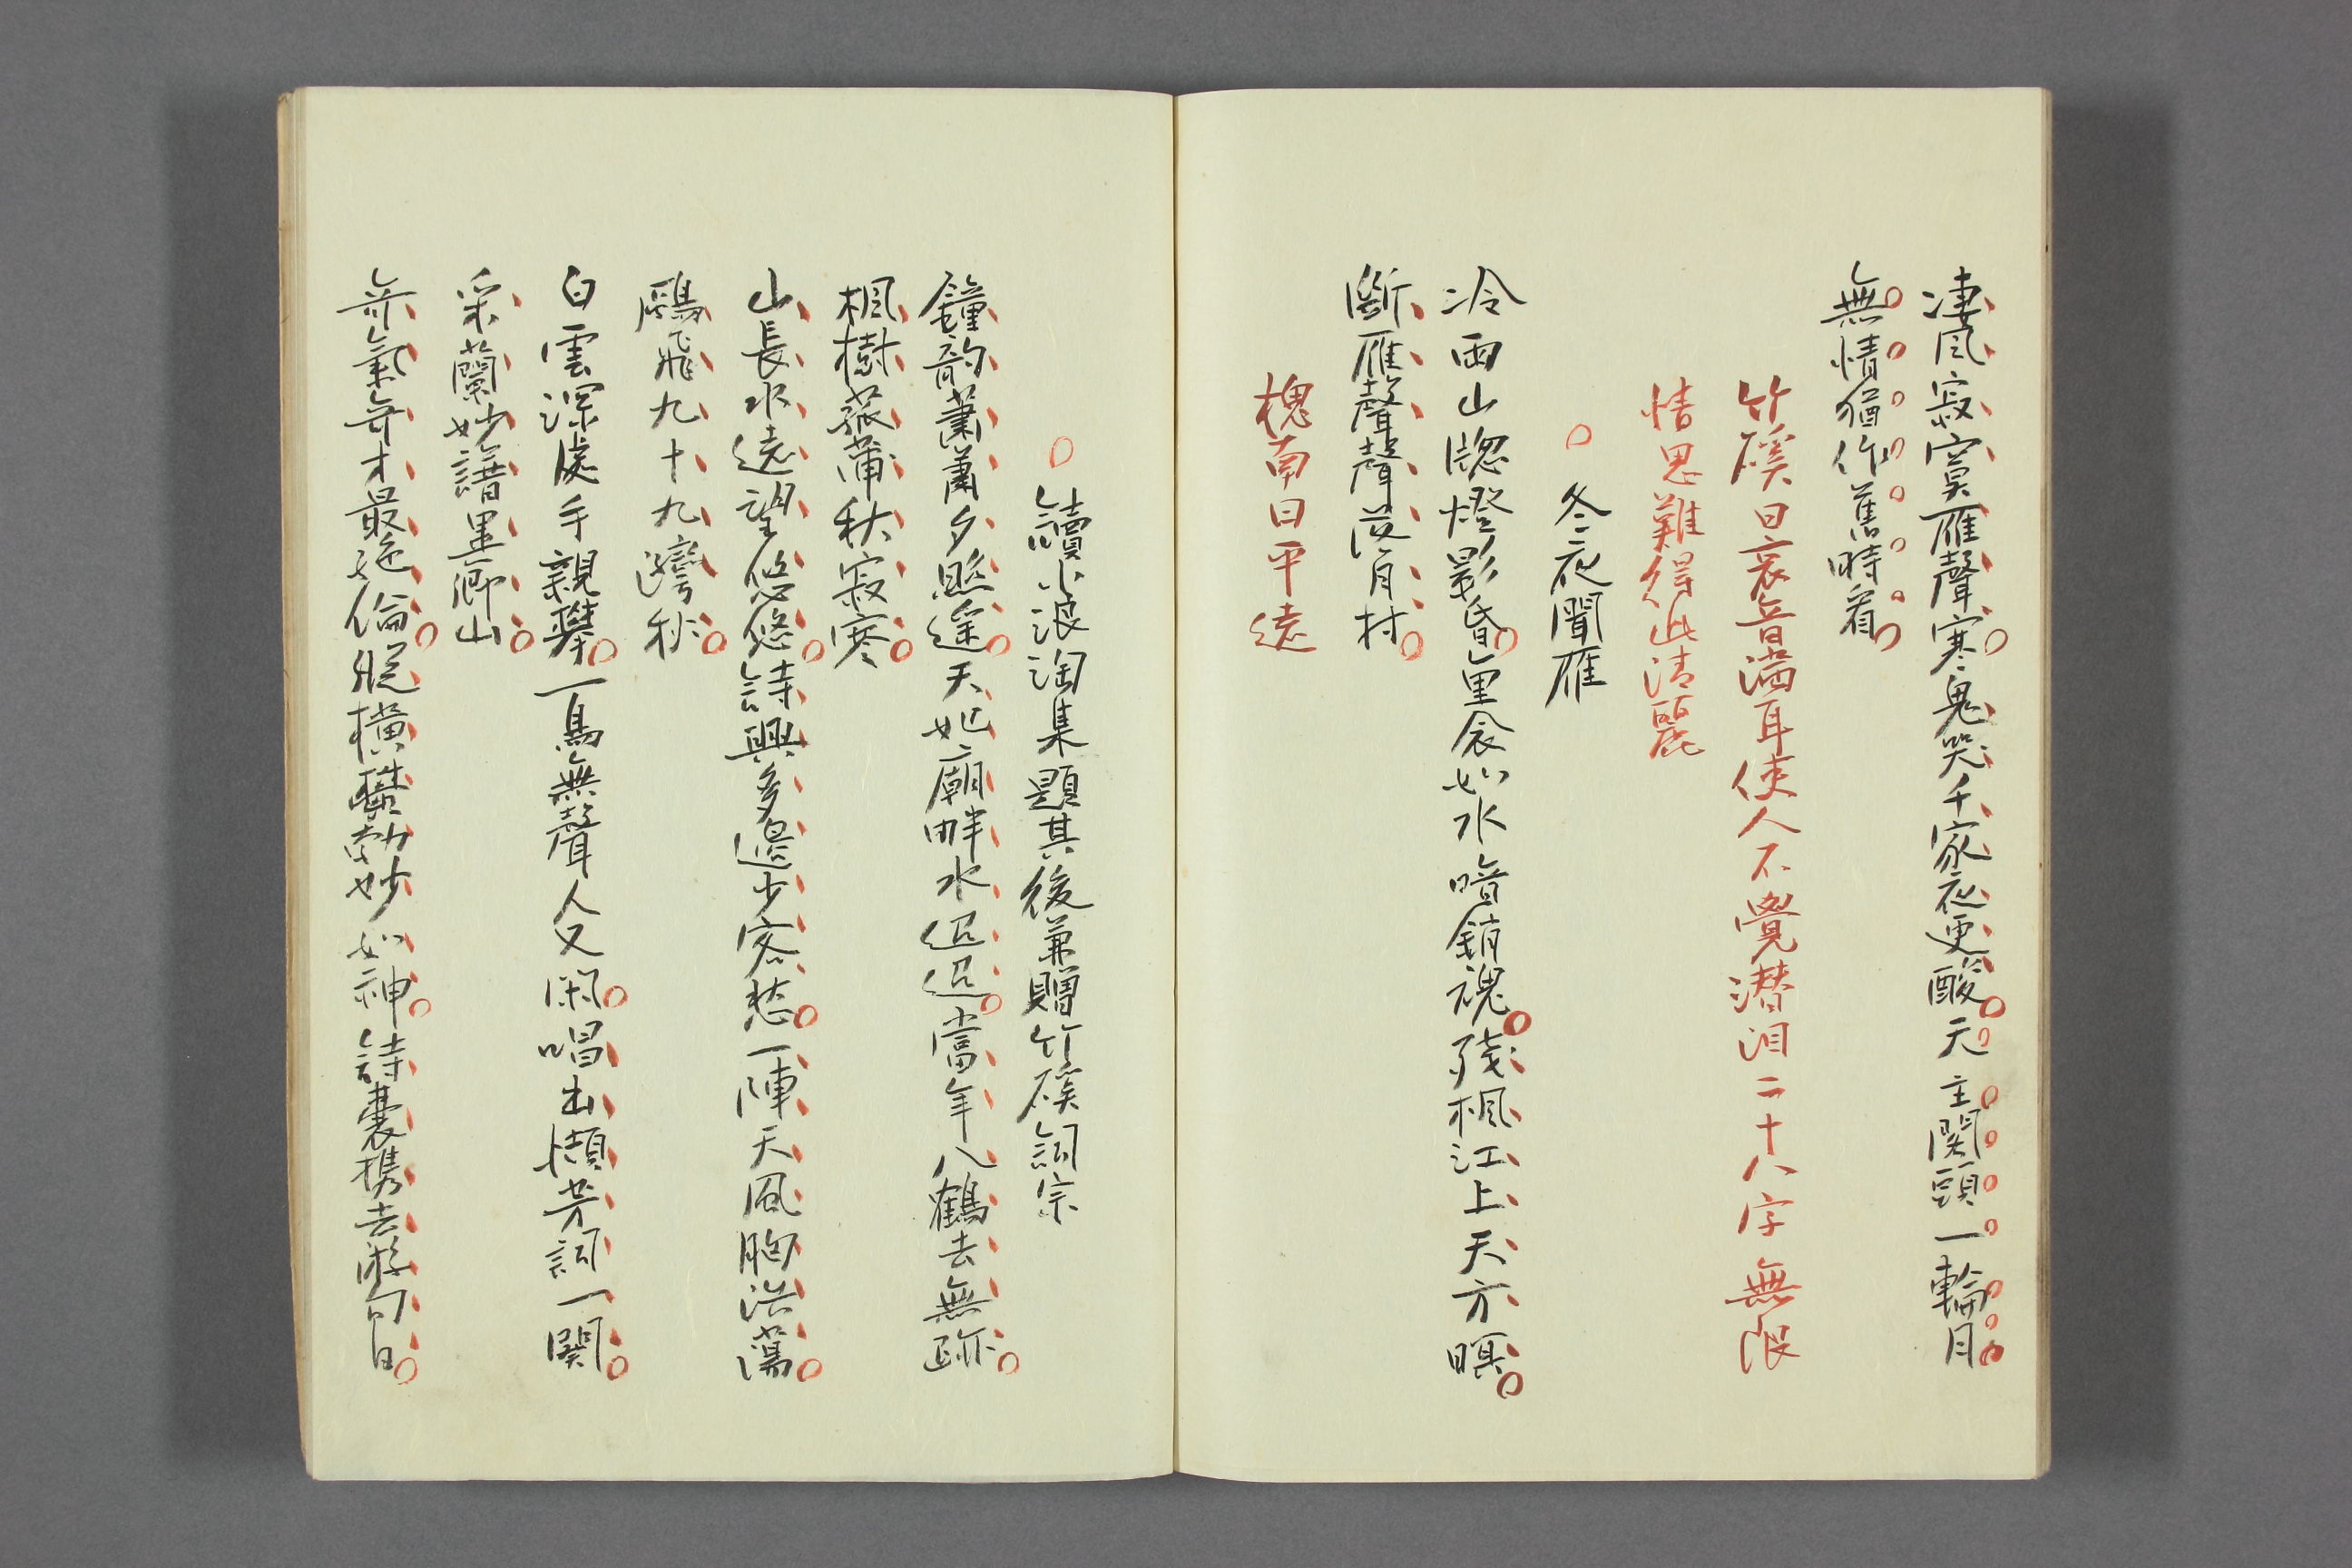 凄風寂寞雁聲寒鬼哭千家夜更酸天主閣頭一輪月
無情猶作舊時看
竹磎曰哀音滿耳使人不覺潜泪二十八字無限
情思難得此清麗
冬夜聞雁
冷雨山牕燈影昏里衾如水喑銷魂殘楓江上天方暝
斷雁聲聲沒月村
槐南曰平遠
讀小浪淘集題其後兼贈竹磎詞宗
鐘韵蕭蕭夕照途天妃廟畔水迢迢當年人鶴去無跡
楓樹菰蒲秋寂寒
山長水遠望悠悠詩興多邊少客愁一陣天風胸浩蕩
鷗飛九十九灣秋
白雲深處手親攀一鳥無聲人又閑唱出擷芳詞一闋
采蘭妙譜墨卿山
奇氣奇才最絶倫縱橫鬱勃妙如神詩囊携去游旬日